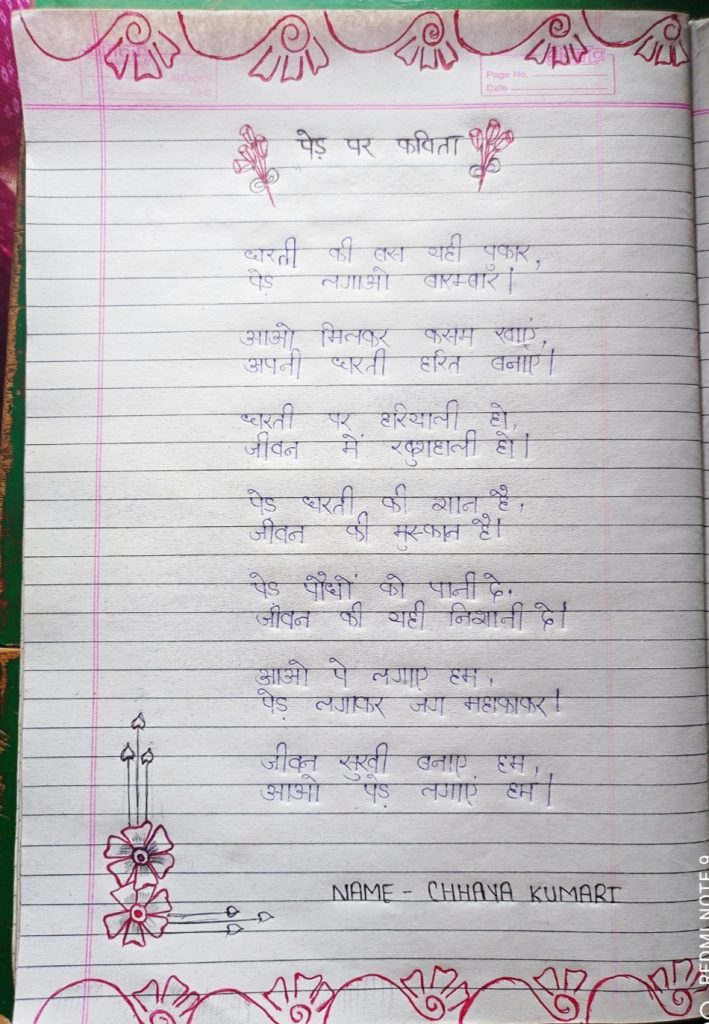 Page No.
Date
पेड़ पर कविता
धरती की बस यही पुकार,
पेड लगाओ बारम्बार।
आओ मिलकर कसम खाएं,
अपनी धरती हरित बनाएं।
धरती पर हरियाली हो,
जीवन में खुशहाली हो।
पेड धरती की शान है,
जीवन की मुस्कान है।
पेड पौधों को पानी दे,
जीवन की यही निशानी दे।
आओ पे लगाए हम,
पेड़ लगाकर जग महाकाकर।
जीवन सुखी बनाए हम,
आओ पेड़ लगाएं हम।
NAME - CHHAYA KUMARI
REDMI NOTE 9